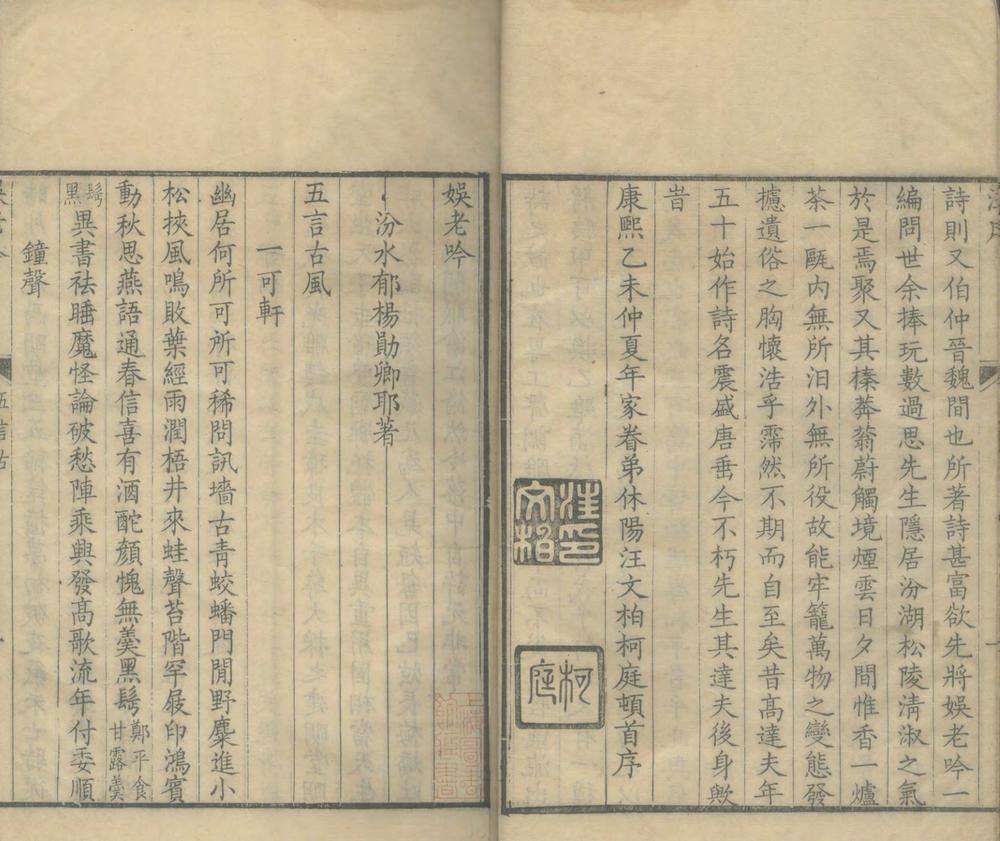 詩則又伯仲晉魏間也所著詩甚富欲先將娛老吟一
編問世余捧玩數過思先生隱居汾湖松陵淸淑之氣
於是焉聚又其榛莽蓊蔚觸境煙雲日夕間惟香一爐
茶一甌內無所汨外無所役故能牢籠萬物之變態發
攄遺俗之胸懷浩乎霈然不期而自至矣昔髙達夫年
五十始作詩名震盛唐垂今不朽先生其達夫後身歟
旹
康熙乙未仲夏年家眷弟休陽汪文柏柯庭頓首序
汪文柏印
柯庭
娛老吟
汾水郁楊勛卿耶著
五言古風
一可軒
幽居何所可所可稀問訊墻古靑蛟蟠門閒野麋進小
松挾風鳴敗葉經雨潤梧井來蛙聲苔階罕屐印鴻賓
動秋思燕語通春信喜有酒酡顏愧無羹黑髩鄭平食甘露羹
髩黑異書祛睡魔怪論破愁陣乘興發髙歌流年付委順
鐘聲